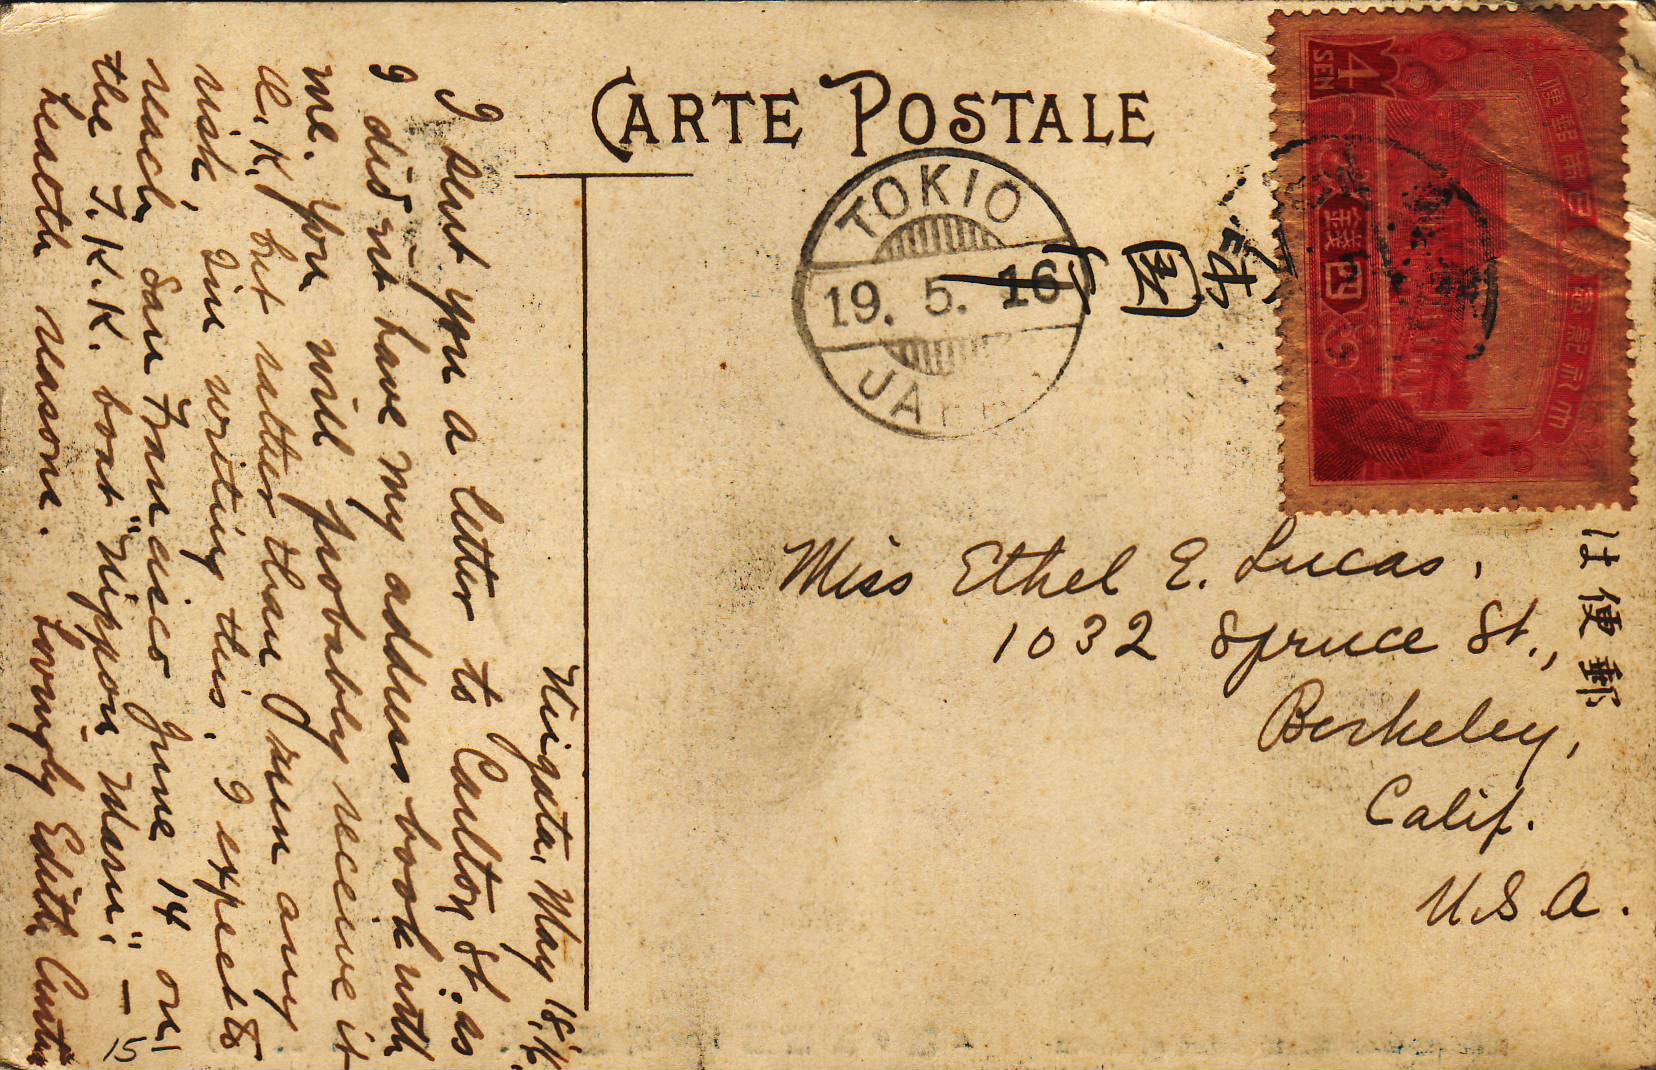 CARTE POSTALE
TOKIO
19. 5. 16
JA
米国行
4
SEN
四錢
郵便は
Miss Ethel E. Lucas,
1032 Spruce St.,
Berkeley,
Calif.
U.S.A.
Niigata, May 18, 16
I sent you a letter to Carlton St. as
I did n't have my address book with
me. You will probably receive it
O. K. but rather than run any
risk I'm writing this. I expect to
reach San Francisco June 14 on
the T. K. K. boat "Nippon Maru". —
health reasons. Lovingly Edith
15